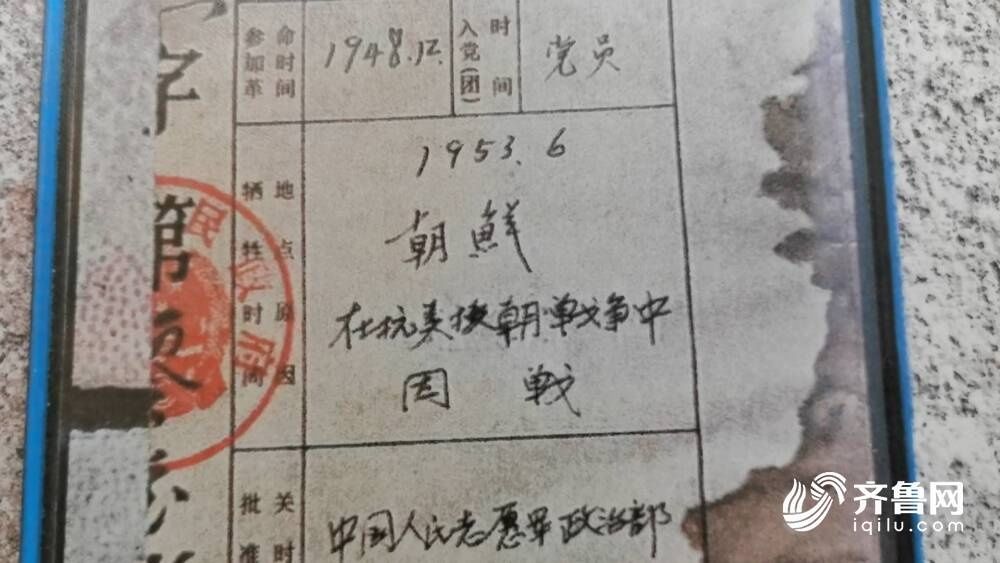 参加革命时间
1948.12.
入党(团)时间
党员
字第
牺牲时间地点原因
1953.6
朝鮮
在抗美援朝戰争中
因戰
批准
关时
中国人民志愿軍政治部
民政府
齐鲁网
iqilu.com